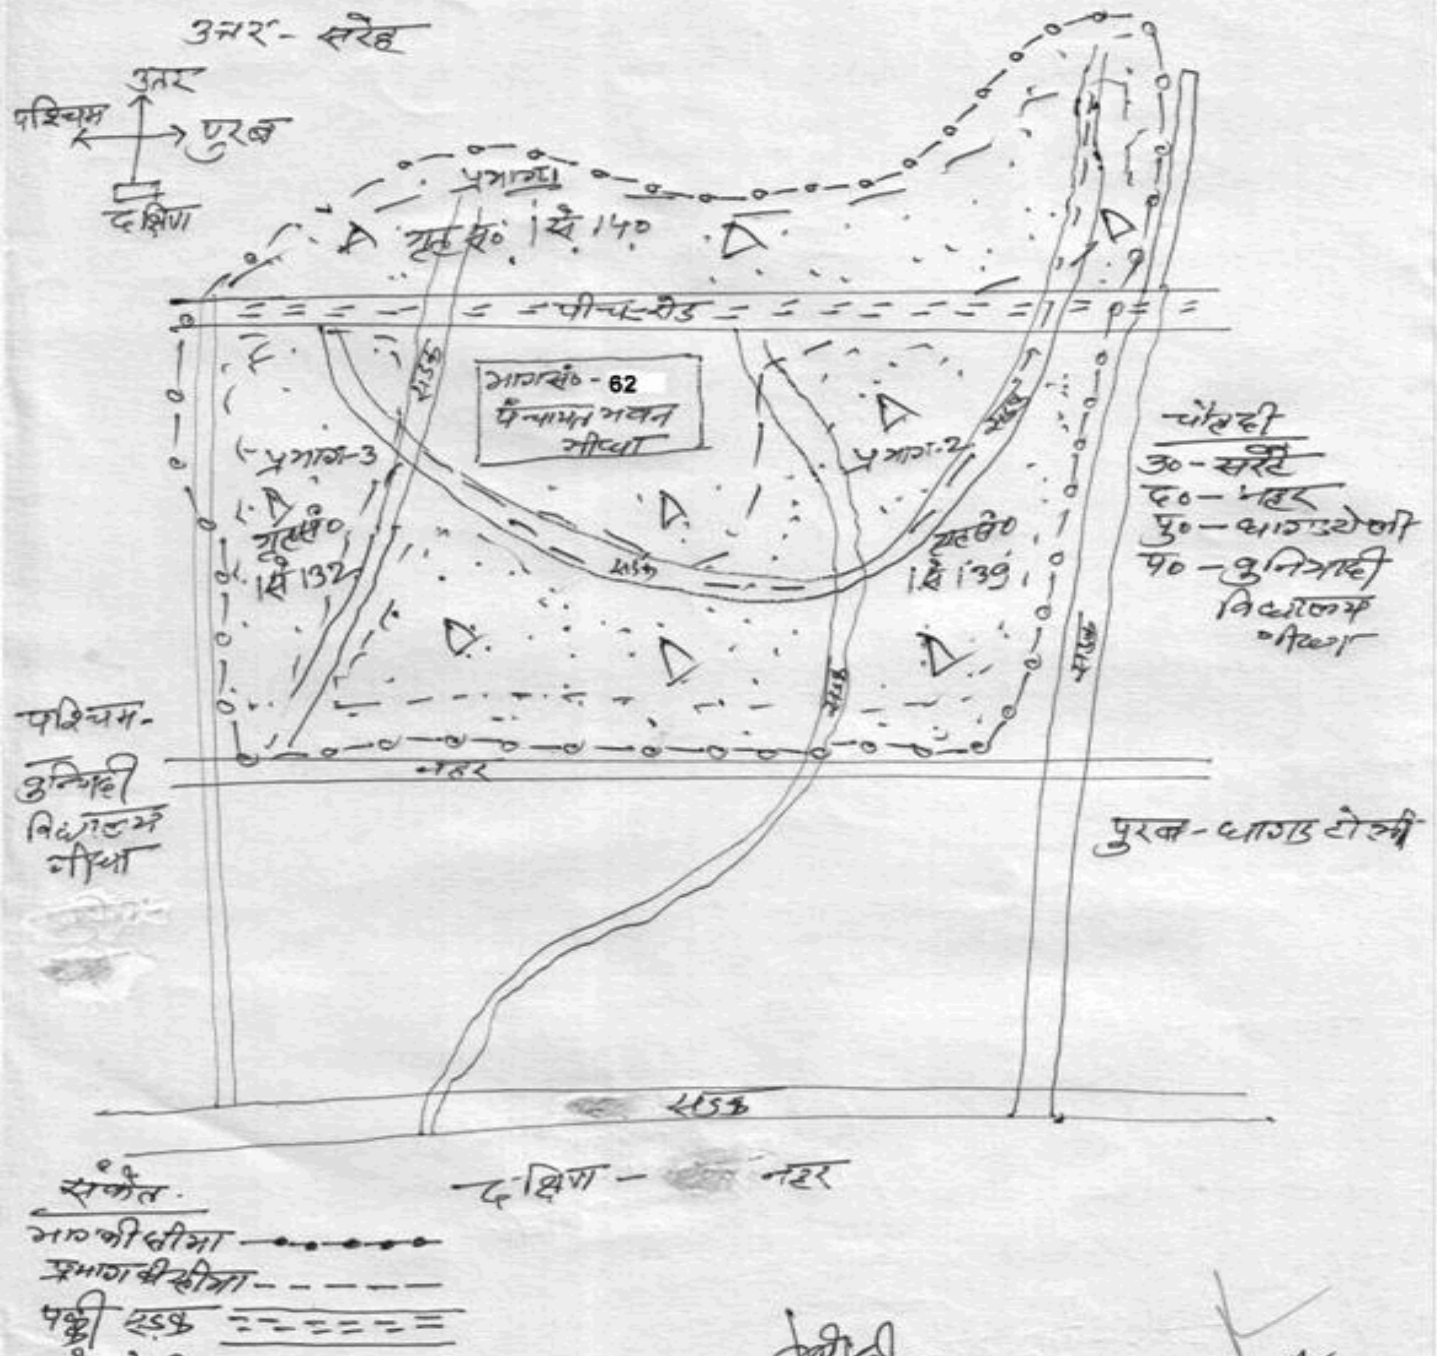 उत्तर - सरेह
उत्तर
पश्चिम
पुरब
दक्षिण
प्रभाग 1
गृह सं० 1 से 140
पीच रोड
सड़क
भाग सं० - 62
पंचायत भवन
प्रभाग-3
गृह सं०
1 से 132
सड़क
प्रभाग-2
सड़क
गृह सं०
1 से 139
सड़क
सड़क
चौहदी
उ० - सरेह
द० - नहर
पु० - धागड टोली
प० - बुनियादी
विद्यालय
पश्चिम -
बुनियादी
विद्यालय
नहर
पुरब - धागड टोली
सड़क
दक्षिण - नहर
संकेत
भाग की सीमा
प्रभाग की सीमा
पक्की सड़क